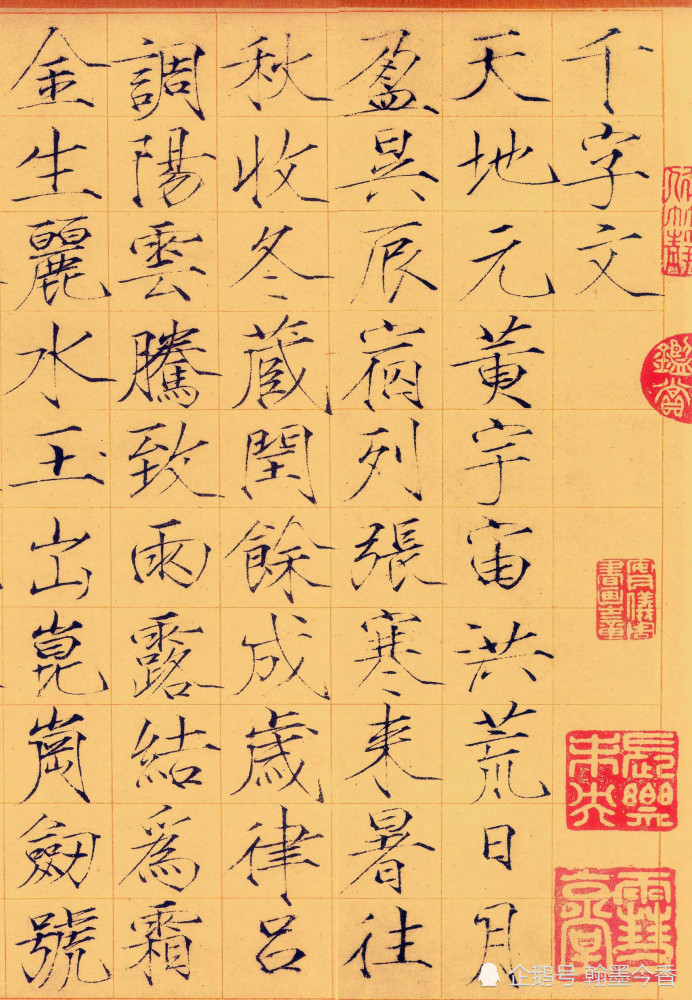 千字文
天地元黄宇宙洪荒日月
盈昃辰宿列張寒来暑往
秋收冬藏閏餘成歲律呂
調陽雲騰致雨露結爲霜
金生麗水玉出崑崗劒號
鑑賞
企鹅号 翰墨今香